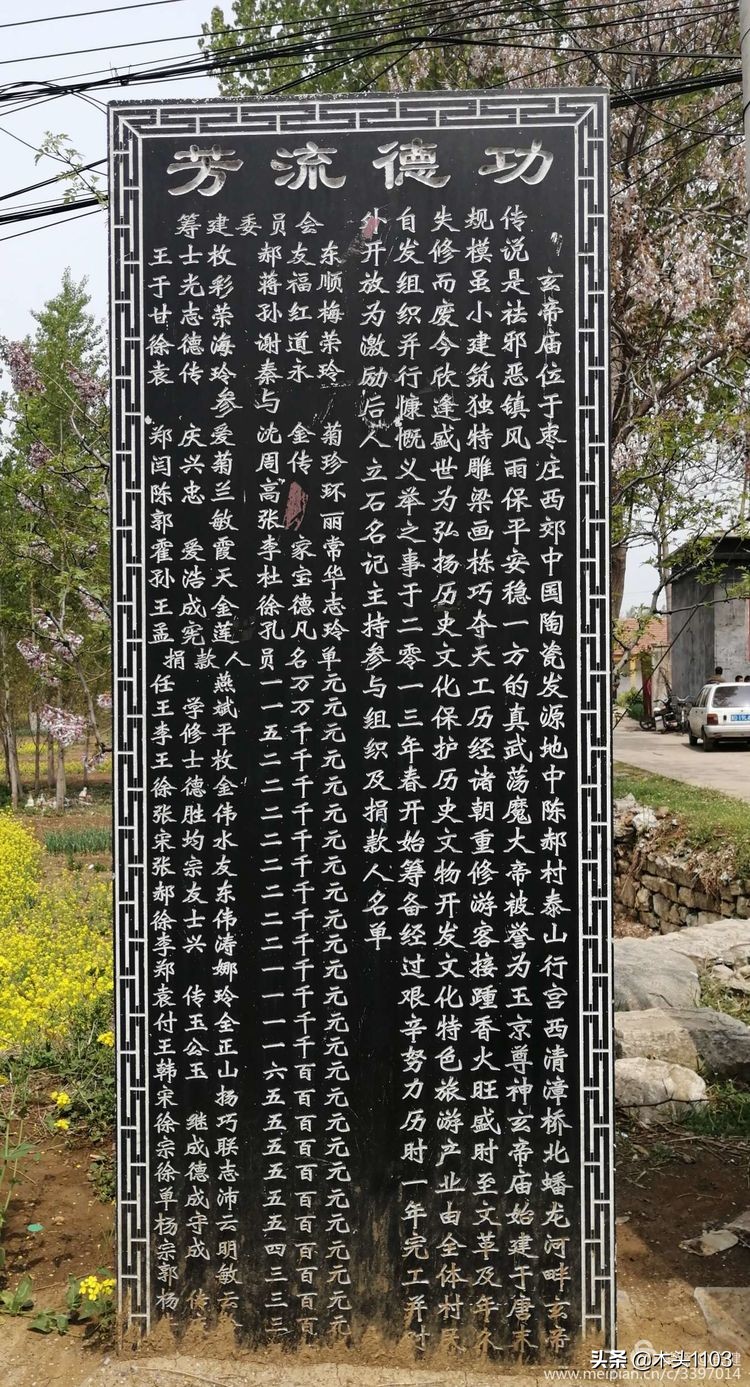 功德流芳
玄帝庙位于枣庄西郊中国陶瓷发源地中陈郝村泰山行宫西清漳桥北蟠龙河畔玄帝
传说是祛邪恶镇风雨保平安稳一方的真武荡魔大帝被誉为玉京尊神玄帝庙始建于唐末
规模虽小建筑独特雕梁画栋巧夺天工历经诸朝重修游客接踵香火旺盛时至文革及年久
失修而废今欣逢盛世为弘扬历史文化保护历史文物开发文化特色旅游产业由全体村民
自发组织并行慷慨义举之事于二零一三年春开始筹备经过艰辛努力历时一年完工并对
外开放为激励后人立石名记主持参与组织及捐款人名单
筹建委员会
王士枚 郝友东
于光彩 蒋福顺
甘志荣 孙红梅
徐德海 谢道荣
袁传玲 秦永玲
参与
郑庆爱 沈金菊
闫兴菊 周传珍
陈忠兰 高环
郭敏 张丽
霍爱霞 李家常
孙浩天 杜宝华
王成金 徐德志
孟宪莲 孔凡玲
捐款人员名单
任燕 一万元
王学斌 一万元
李修平 五千元
王士枚 二千元
徐德金 二千元
张胜伟 二千元
宋均水 二千元
张宗友 二千元
郝友东 二千元
徐士伟 二千元
李兴涛 一千元
郑娜 一千元
袁传玲 一千元
付玉全 一千元
王公正 六百元
韩玉山 五百元
宋扬 五百元
徐继巧 五百元
宗成联 五百元
徐德志 五百元
单成沛 五百元
杨守云 四百元
宗成明 三百元
郭敏 三百元
杨传云 三百元
头条 @木头1103
www.meipian.cn/c/3397014